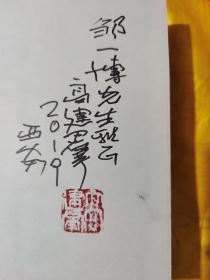 邹一博先生哂正
高建群
2019
西安